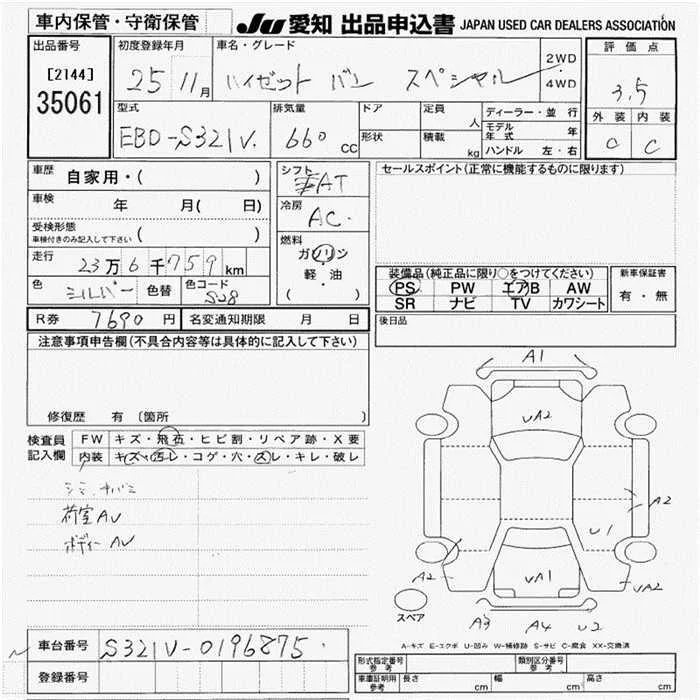 車内保管・守衛保管
JU 愛知 出品申込書 JAPAN USED CAR DEALERS ASSOCIATION
出品番号 初度登録年月 車名・グレード 2WD・4WD 評価点
[2144] 25 11月 ハイゼット バン スペシャル 3.5
35061
型式 排気量 ドア 定員 人 ディーラー・並行 外装 内装
EBD-S321V 660 cc 形状 積載 kg モデル年式 年 C C
ハンドル 左・右
車歴 自家用・( ) シフト AT セールスポイント(正常に機能するものに限ります)
車検 年 月( 日) 冷房 AC
受検形態 ( )
車検付きのみ記入して下さい
燃料 ガソリン
走行 23万6千759km 軽・油 装備品(純正品に限り○をつけてください) 新車保証書
色 シルバー 色替 色コード S28 ( ・ ) PS PW エアB AW 有・無
SR ナビ TV カワシート
R券 7690円 名変通知期限 月 日 後日品
注意事項申告欄(不具合内容等は具体的に記入して下さい)
A1
UA2
修復歴 有 〔箇所
検査員 FW キズ・飛石・ヒビ割・リペア跡・X要
記入欄 内装 キズ・汚レ・コゲ・穴・スレ・キレ・破レ
A2
荷室AU
U1
ボディーAU
A2 UA1 UA2
スペア
A3 A4 U2
A-キズ E-エクボ U-凹み W-補修跡 S-サビ C-腐食 XX-交換済
車台番号 S321V-0196875
登録番号
型式指定番号 参考 類別区分番号 参考
車庫証明用 参考 長さ cm 幅 cm 高さ cm